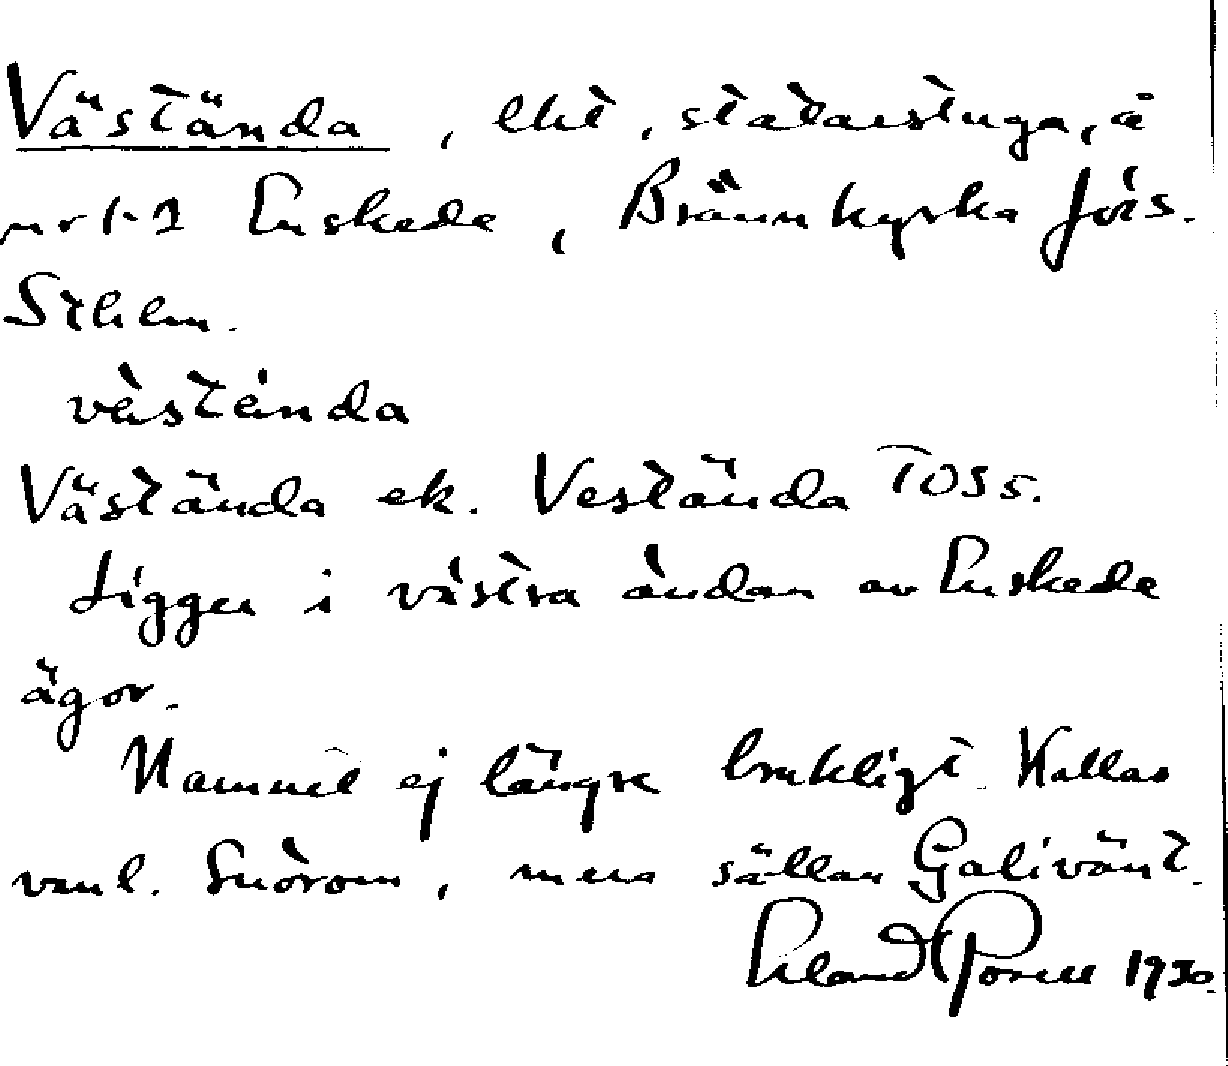 Västända, lht, statarstuga, å
nr 1-2 Enskede, Brännkyrka förs.
Sthlm.
västända
Västända ek. Vestända
Ligger i västra ändan av Enskede
ägor.
Namnet ej längre brukligt. Kallas
vanl. Snörom, mera sällan Galivänt.
Erland 1930.